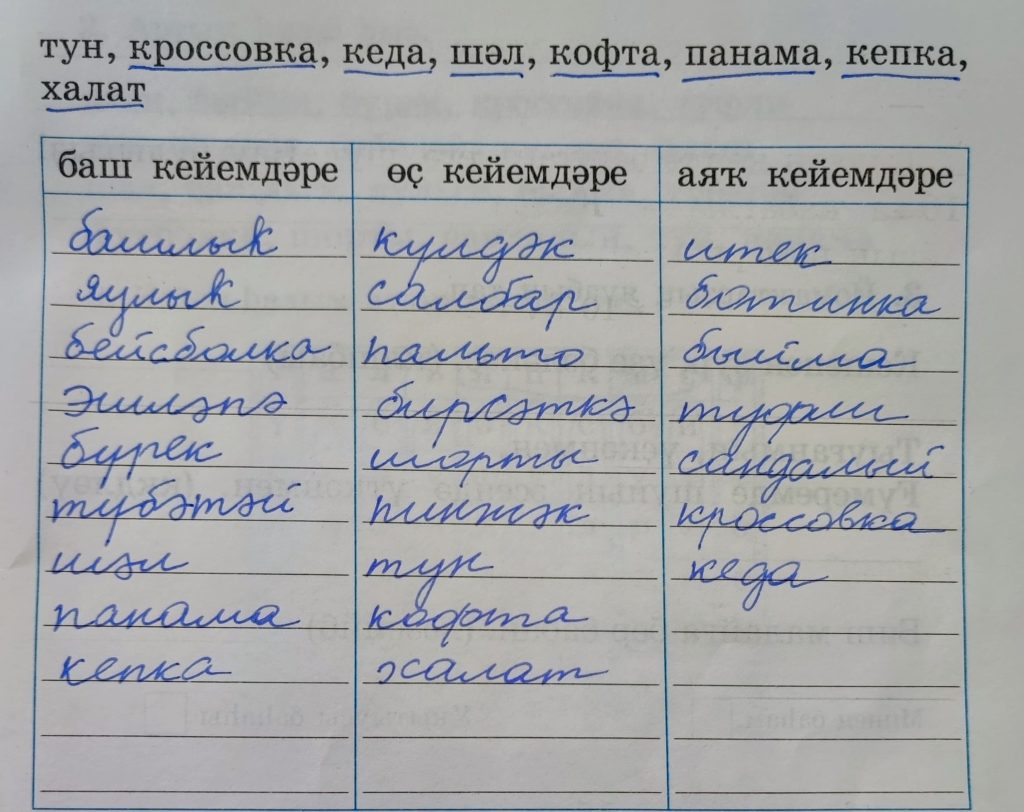 тун, кроссовка, кеда, шәл, кофта, панама, кепка,
халат
баш кейемдәре өҫ кейемдәре аяҡ кейемдәре
башлыҡ күлдәк итек
яулыҡ салбар ботинка
бейсболка пальто быйма
эшләпә бирсәткә туфли
бүрек шорты сандалый
түбәтәй пинжәк кроссовка
шәл тун кеда
панама кофта
кепка халат